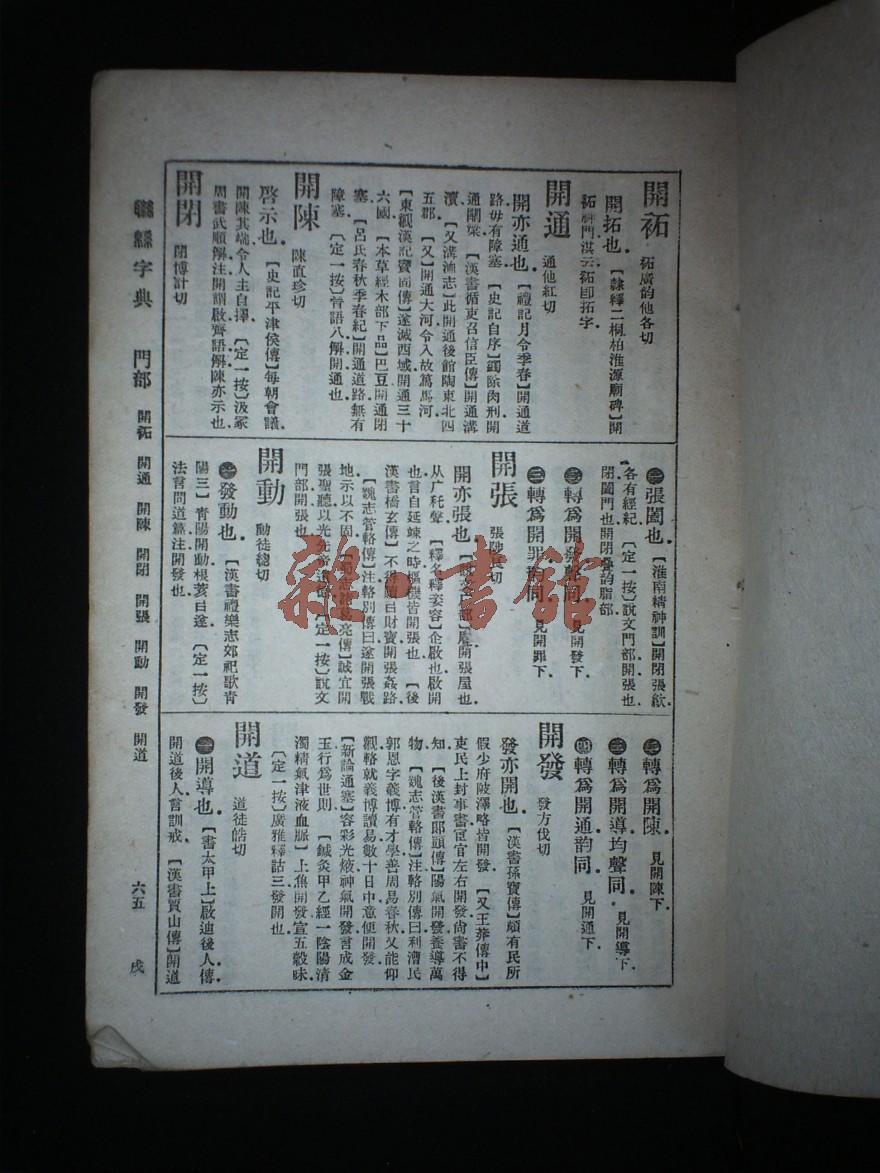 開袥 袥廣韵他各切
開拓也【隸釋二桐柏淮源廟碑】開
袥神門淇云袥卽拓字
開通 通他紅切
開亦通也【禮記月令季春】開通道
路毋有障塞【史記自序】蠲除肉刑開
通關梁【漢書循吏召信臣傳】開通溝
瀆【又溝洫志】此開通後館陶東北四
五郡【又】開通大河令入故篤馬河
【東觀漢記竇固傳】遂滅西域開通三十
六國【本草經木部下品】巴豆開通閉
塞【呂氏春秋季春紀】開通道路無有
障塞【定一按】晉語八解開通也
開陳 陳直珍切
啓示也【史記平津侯傳】每朝會議
開陳其端令人主自擇【定一按】汲冢
周書武順解注開謂啟齊語解陳亦示也
開閉 閉博計切
㊀張闔也【淮南精神訓】開閉張歙
各有經紀【定一按】說文門部開張也
閉闔門也開閉疊韵脂部
㊁轉爲開發轉同 見開發下
㊂轉爲開罪均同 見開罪下
開張 張陟良切
開亦張也 開張屋也
从广秅聲【釋名釋姿容】企啟也啟開
也言自延竦之時樞機皆開張也【後
漢書橋玄傳】不得 曰財寶開張姦路
【魏志管輅傳】注輅別傳曰遂開張戰
地示以不固 亮傳】誠宜開
張聖聽以光先帝遺德【定一按】說文
門部開張也
開動 動徒總切
㊀發動也【漢書禮樂志郊祀歌青
陽三】青陽開動根荄曰遂【定一按】
法言問道篇注開發也
㊁轉爲開陳 見開陳下
㊂轉爲開導均聲同 見開導下
㊃轉爲開通韵同 見開通下
開發 發方伐切
發亦開也【漢書孫寶傳】頗有民所
假少府陂澤略皆開發【又王莽傳中】
吏民上封事書宦官左右開發尙書不得
知【後漢書郎顗傳】陽氣開發養導萬
物【魏志管輅傳】注輅別傳曰利漕民
郭恩字義博有才學善周易春秋又能仰
觀輅就義博讀易數十日中意便開發
【新論通塞】容彩光液神氣開發言成金
玉行爲世則【鍼灸甲乙經一陰陽清
濁精氣津液血脈】上焦開發宣五穀味
【定一按】廣雅釋詁三發開也
開道 道徒皓切
㊀開導也【書太甲上】啟迪後人傳
開道後人言訓戒【漢書賈山傳】開道
聯緜字典 門部 開袥 開通 開陳 開閉 開張 開動 開發 開道 六五 戌
雜·書館